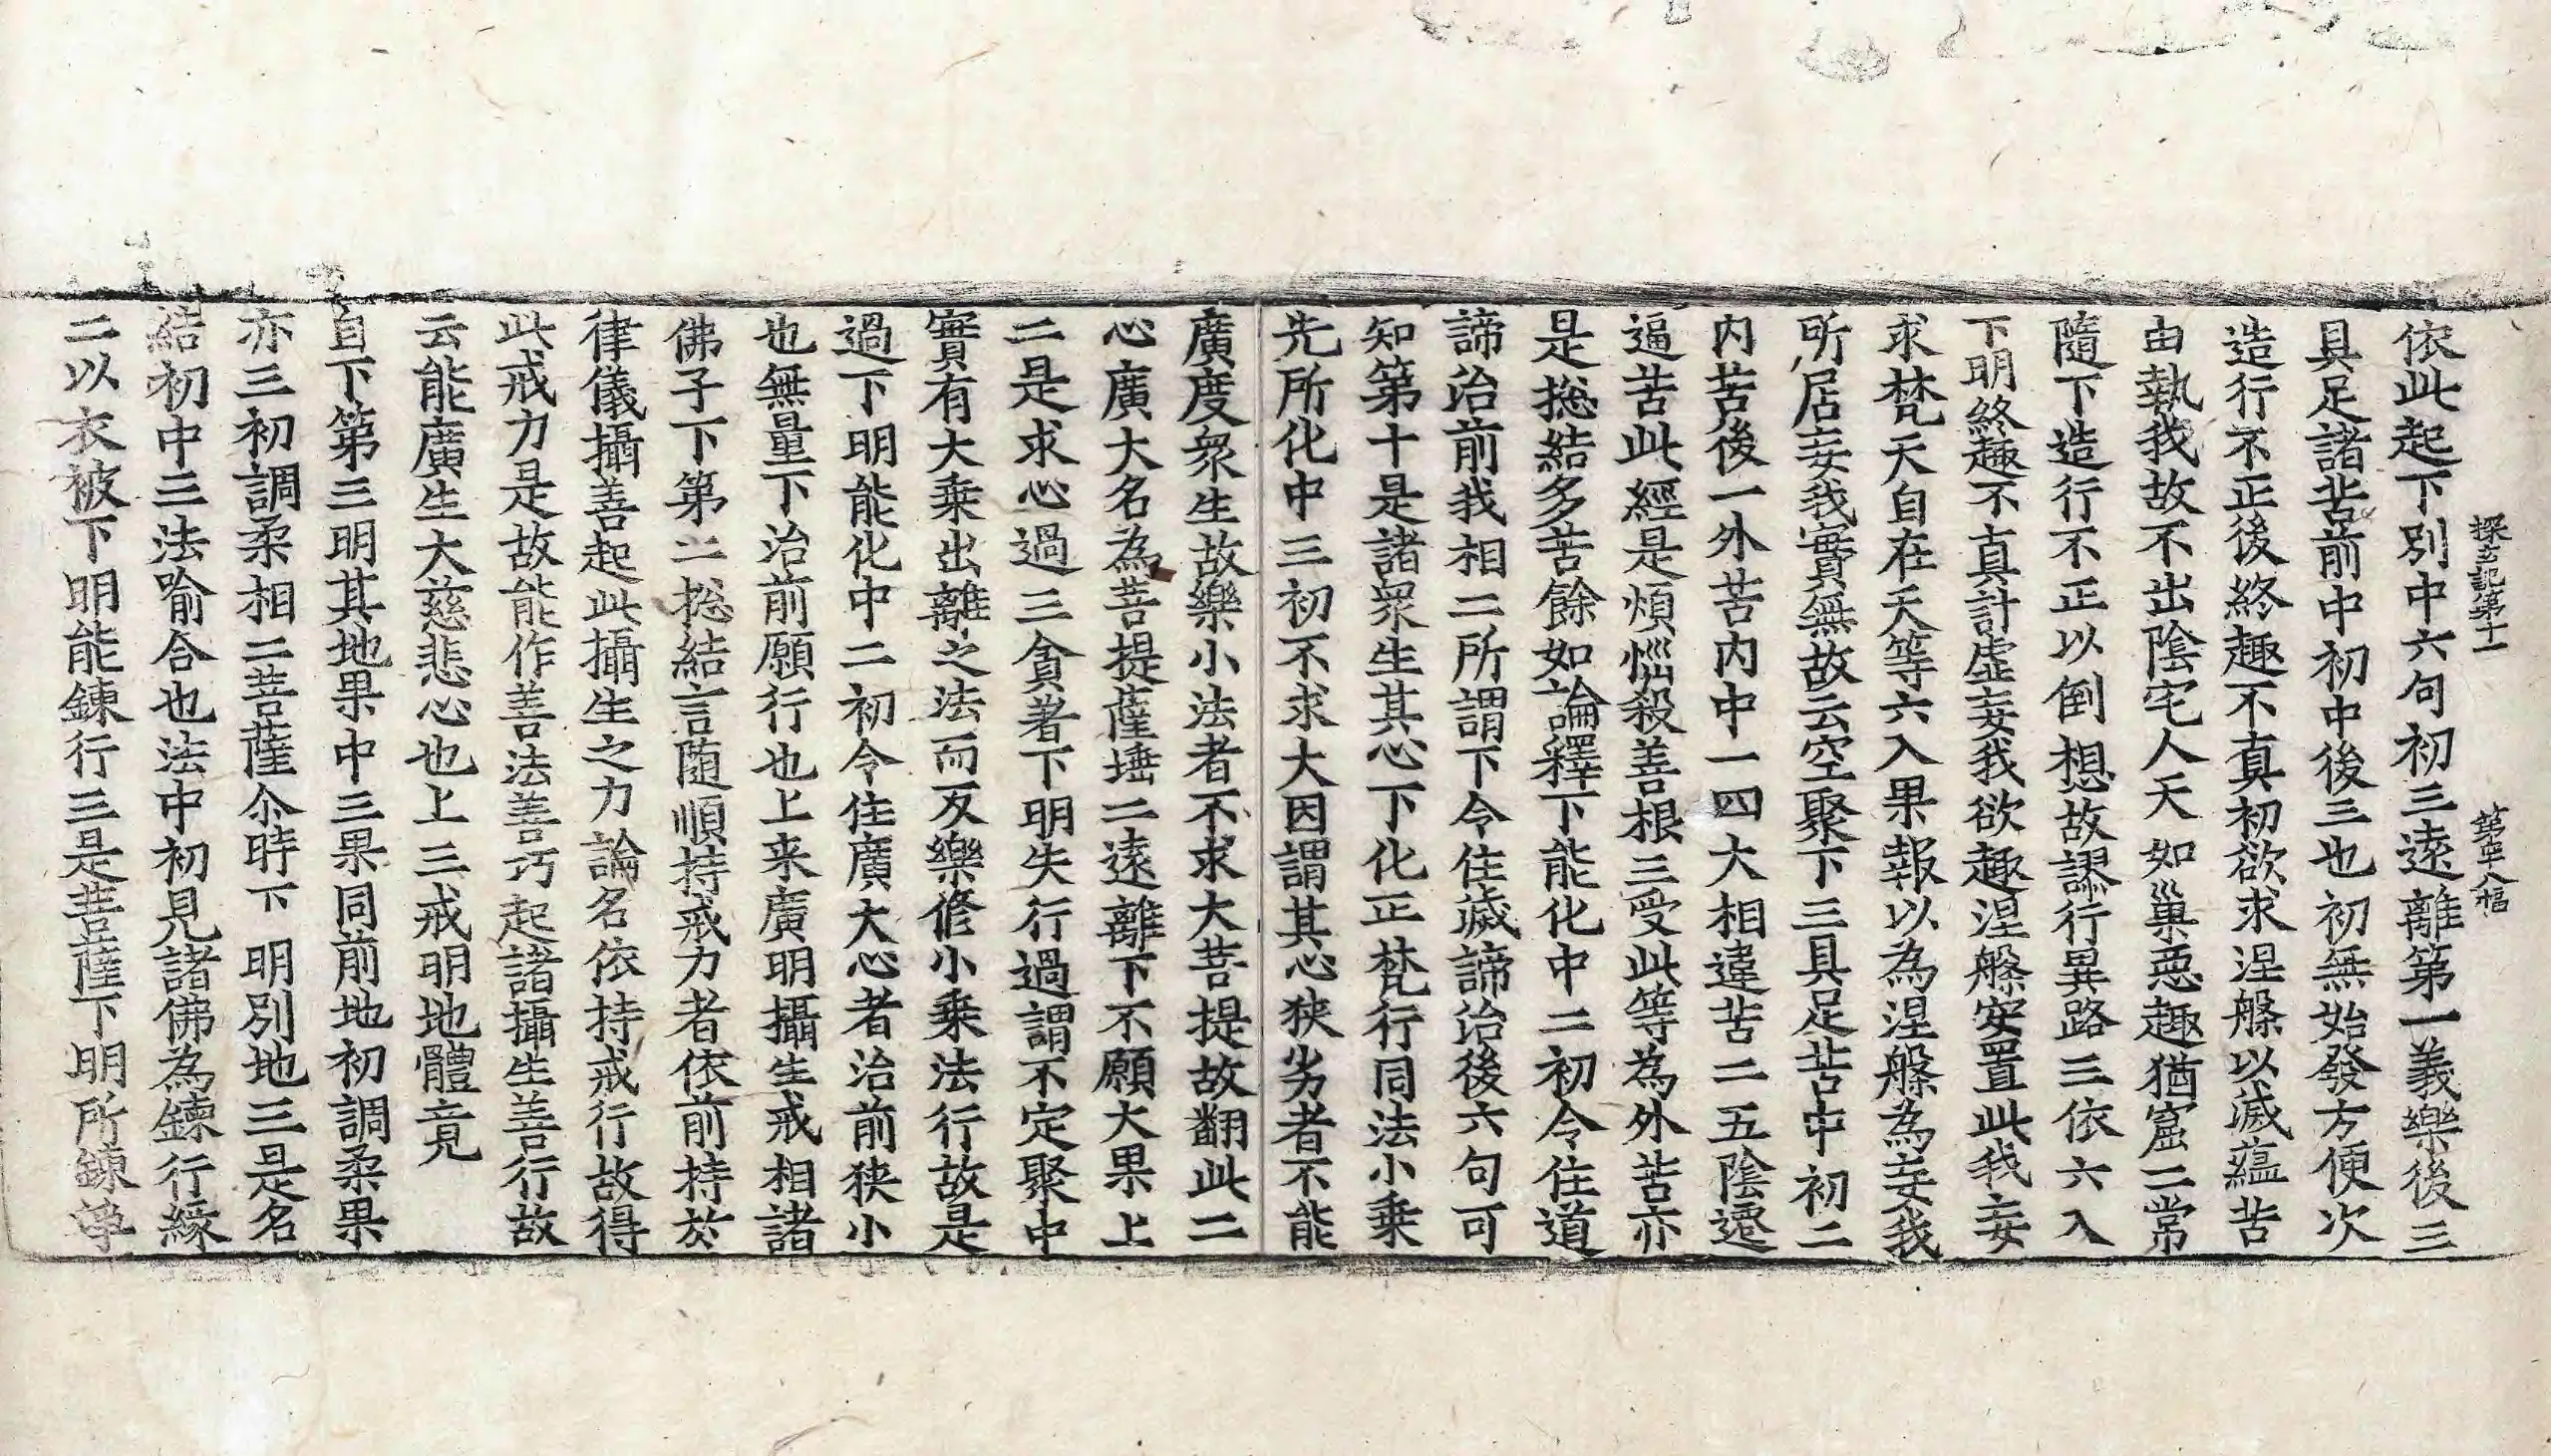 探玄記第十一 第宰八楅
依此起下別中六句初三遠離第一義樂後三
具足諸苦前中初中後三也初無始發方便次
造行不正後終趣不真初欲求涅槃以滅蘊苦
由執我故不出陰宅人天如巢惡趣猶窟二常
隨下造行不正以倒想故謬行異路三依六入
下明終趣不真計虛妄我欲趣涅槃安置此我妄
求梵天自在天等六入果報以為涅槃為妄我
所居妄我實無故云空聚下三具足苦中初二
内苦後一外苦内中一四大相違苦二五陰遷
逼苦此經是煩惱殺善根三受此等為外苦亦
是捴結多苦餘如論釋下能化中二初令住道
諦治前我相二所謂下令住滅諦治後六句可
知第十是諸衆生其心下化正梵行同法小乗
先所化中三初不求大因謂其心狹劣者不能
廣度衆生故樂小法者不求大菩提故翻此二
心廣大名為菩提薩埵二遠離下不願大果上
二是求心過三貪著下明失行過謂不定聚中
實有大乗出離之法而反樂脩小乗法行故是
過下明能化中二初令住廣大心者治前狹小
也無量下治前願行也上来廣明攝生戒相諸
佛子下第二捴結言随順持戒力者依前持於
律儀攝善起此攝生之力論名依持戒行故得
此戒力是故能作善法善巧起諸攝生善行故
云能廣生大慈悲心也上三戒明地體竟
自下第三明其地果中三果同前地初調柔果
亦三初調柔相二菩薩尒時下明別地三是名
結初中三法喻合也法中初見諸佛為鍊行緣
二以衣被下明能鍊行三是菩薩下明所鍊淨